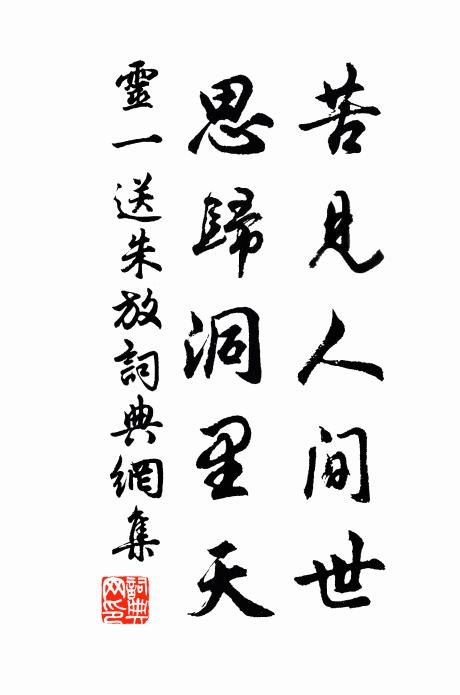 苦見人间世
思歸洞里天
靈一送朱放詞典網集
詞典網印